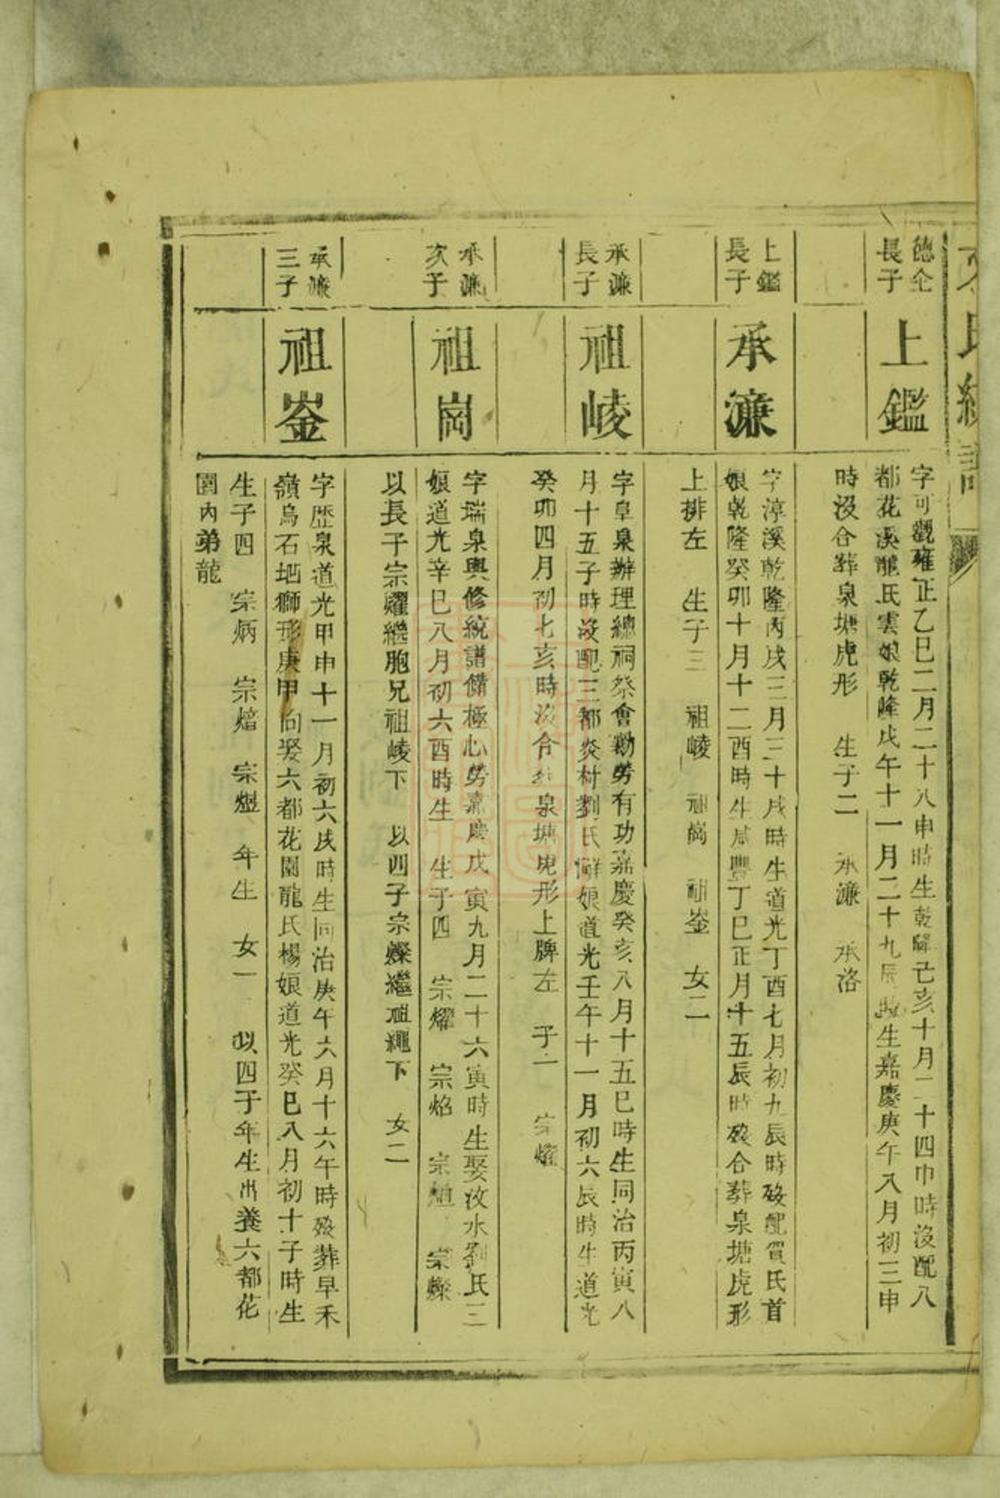 氏統譜
德全
長子
上鑑
字可觀雍正乙巳二月二十八申時生乾隆己亥十月二十四巾時沒配八
都花溪龍氏雲娘乾隆戊午十一月二十九辰時生嘉慶庚午八月初三申
時沒合葬泉塘虎形 生子二 承濂 承洛
上鑑
長子
承濂
字淳溪乾隆丙戌三月三十戌時生道光丁酉七月初九辰時歿配賀氏首
娘乾隆癸卯十月十二酉時生咸豐丁巳正月十五辰時歿合葬泉塘虎形
上排左 生子三 祖崚 祖崗 祖崟 女二
承濂
長子
祖崚
字阜泉辦理總祠祭會勤勞有功嘉慶癸亥八月十五巳時生同治丙寅八
月十五子時沒配三都炎村劉氏鮮娘道光壬午十一月初六辰時生道光
癸卯四月初七亥時沒合葬泉塘虎形上牌左 子一 宗燿
承濂
次子
祖崗
字瑞泉與修統譜備極心勞嘉慶戊寅九月二十六寅時生娶汶水劉氏三
娘道光辛巳八月初六酉時生 生子四 宗燿 宗焰 宗 宗爍
以長子宗燿繼胞兄祖崚下 以四子宗爍繼祖繩下 女二
承濂
三子
祖崟
字歷泉道光甲申十一月初六戌時生同治庚午六月十六午時歿葬早禾
嶺烏石垇獅形庚甲向娶六都花園龍氏楊娘道光癸巳八月初十子時生
生子四 宗炳 宗熺 宗煜 年生 女一 以四子年生出養六都花
園內弟龍